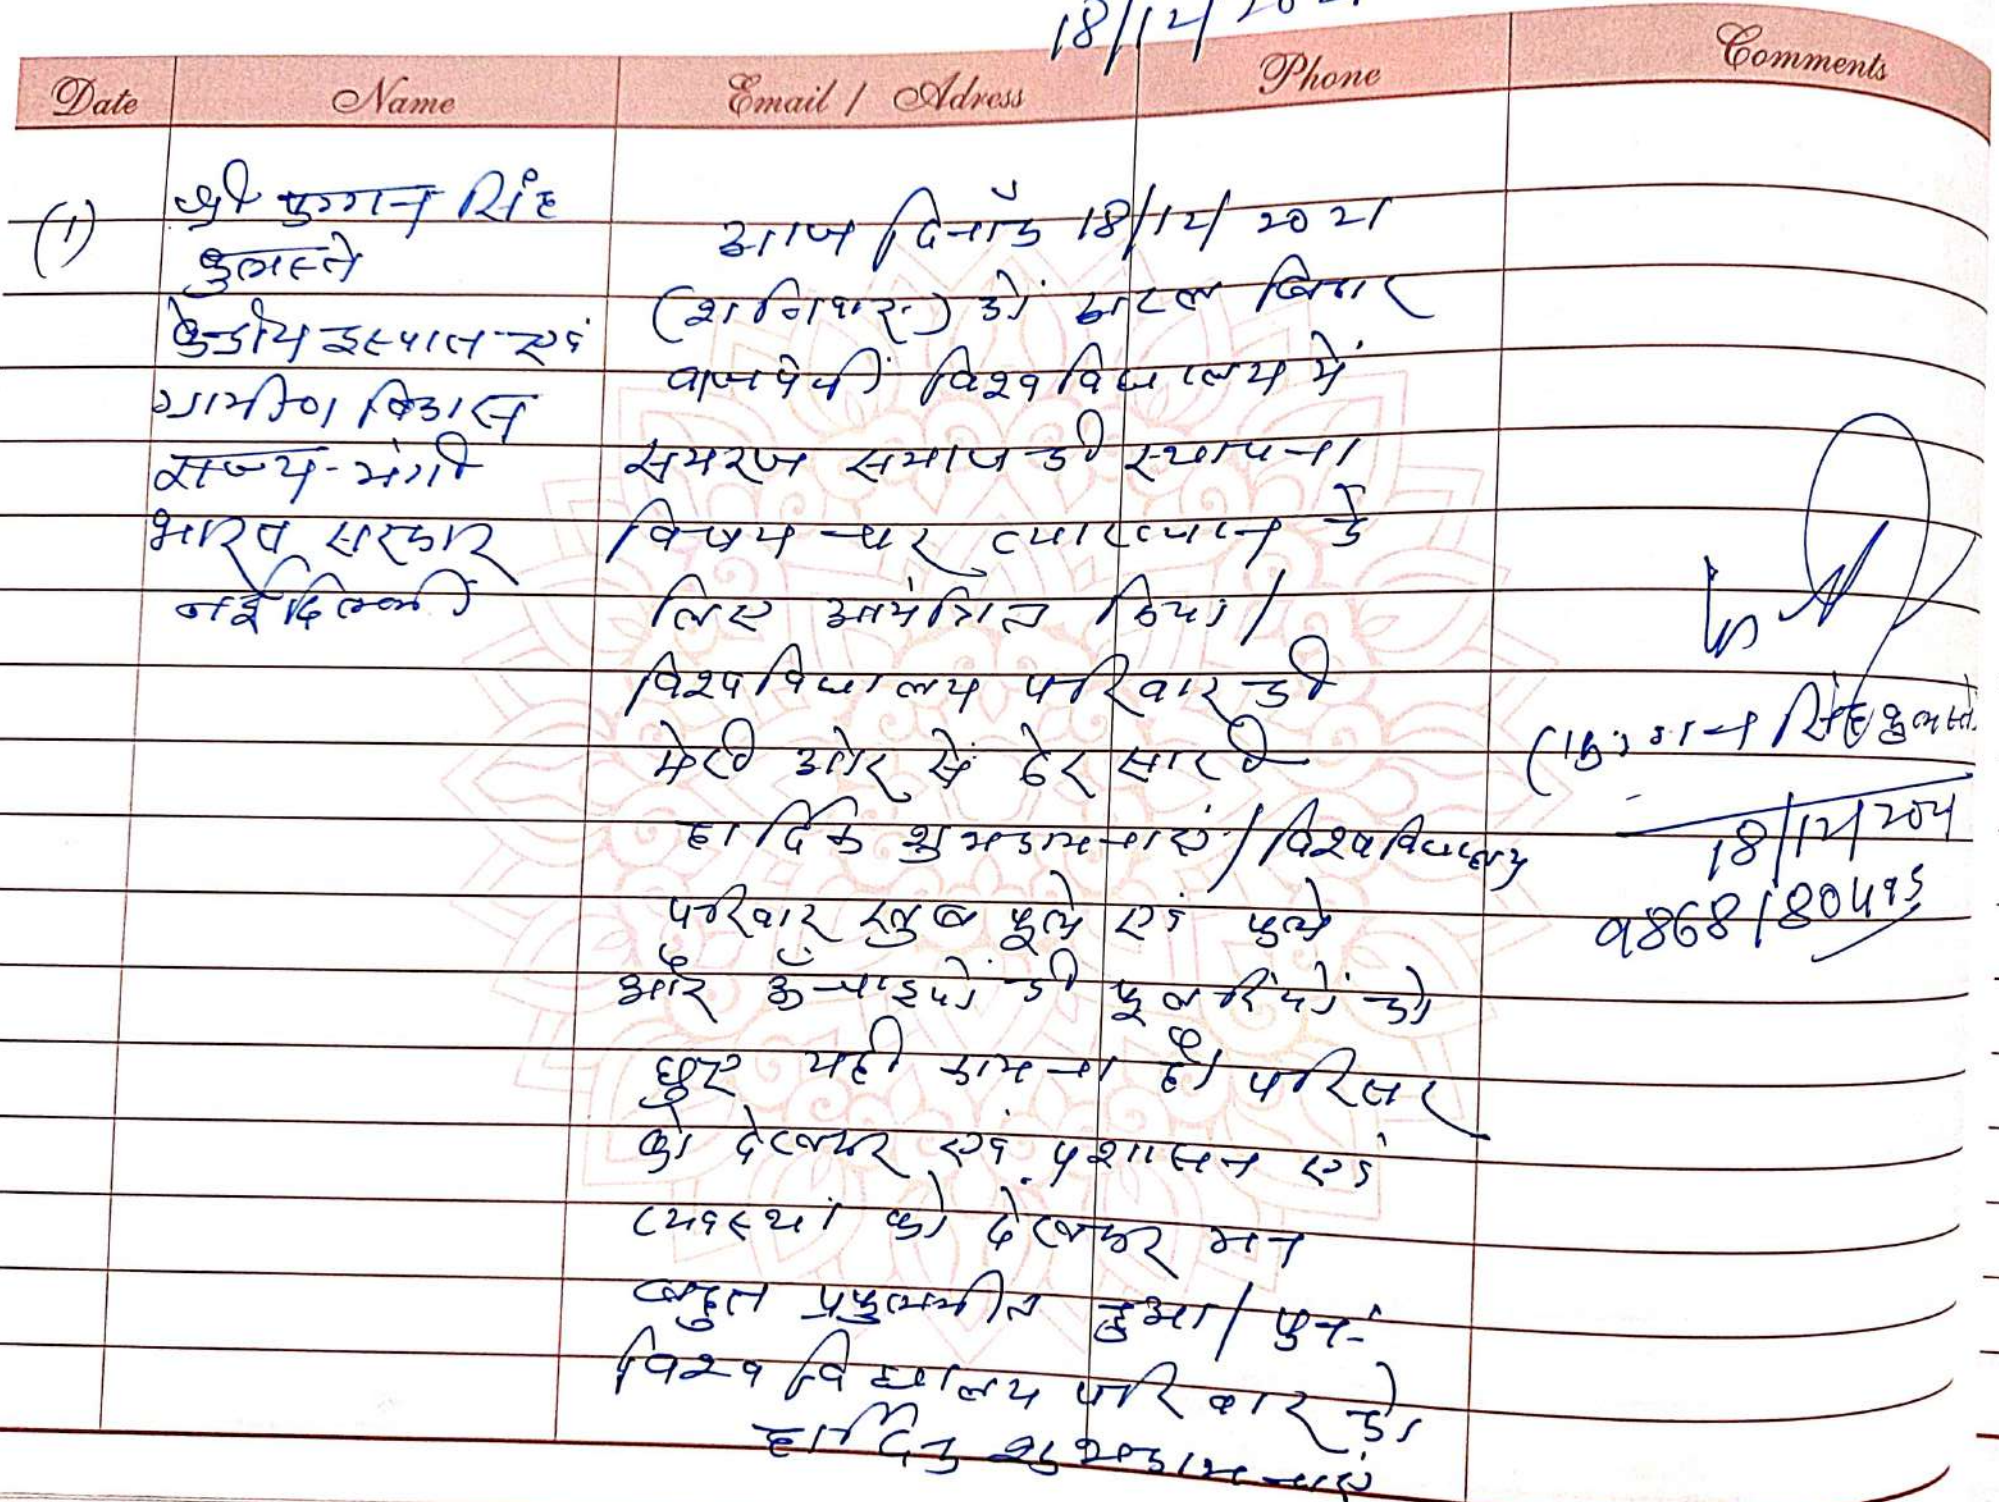 18/12/20
Date Name Email / Adress Phone Comments
(1)
श्री फग्गन सिंह
कुलस्ते
केन्द्रीय इस्पात एवं
ग्रामीण विकास
राज्य-मंत्री
भारत सरकार
नई दिल्ली
आज दिनाँक 18/12/2021
(शनिवार) को अटल बिहार
वाजपेयी विश्वविद्यालय में
समरस समाज की स्थापना
विषय पर व्याख्यान के
लिए आमंत्रित किया।
विश्वविद्यालय परिवार को
मेरी ओर से ढेर सारी
हार्दिक शुभकामनाएं। विश्वविद्यालय
परिवार खुब फूले एवं फले
और ऊँचाइयों की बुलंदियों को
छुए यही कामना है। परिसर
को देखकर एवं प्रशासन एवं
व्यवस्था को देखकर मन
बहुत प्रफुल्लित हुआ। पुनः
विश्वविद्यालय परिवार को
हार्दिक शुभकामनाएं
(फग्गन सिंह कुलस्ते)
18/12/2021
9868180495